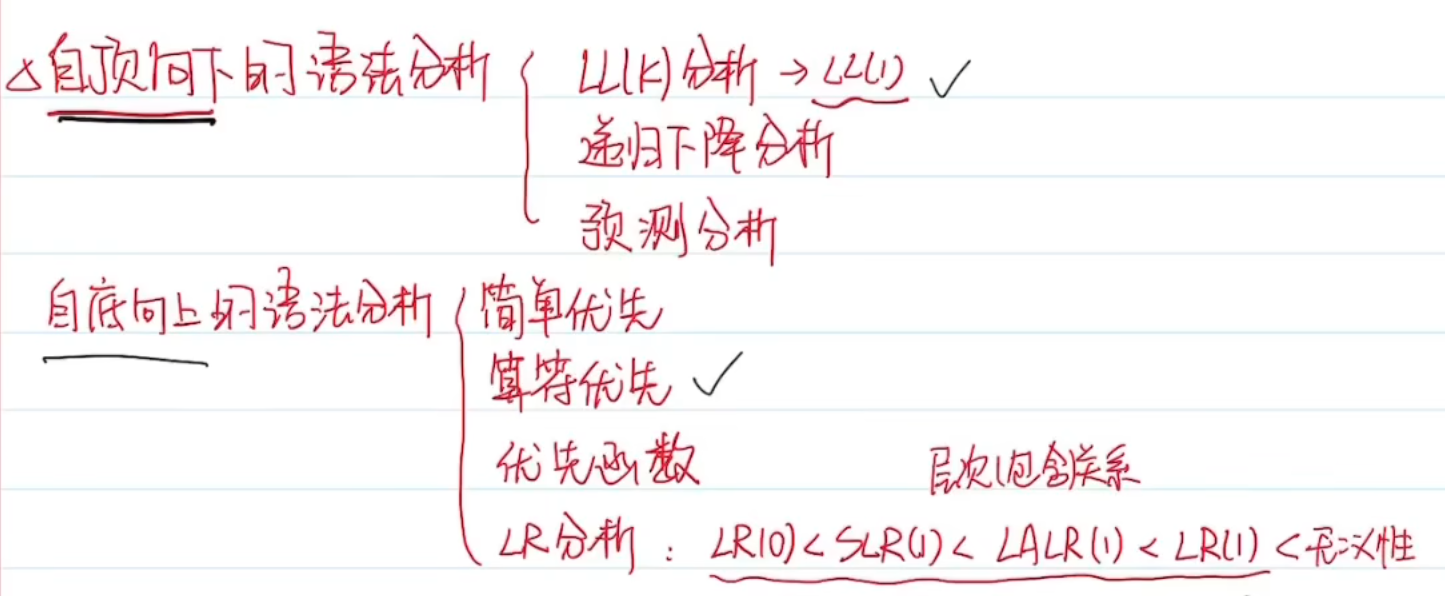 △自顶向下的语法分析 { LL(K)分析 → LL(1) ✓
递归下降分析
预测分析
自底向上的语法分析 { 简单优先
算符优先 ✓
优先函数
层次(包含)关系
LR分析: LR(0) < SLR(1) < LALR(1) < LR(1) < 无二义性